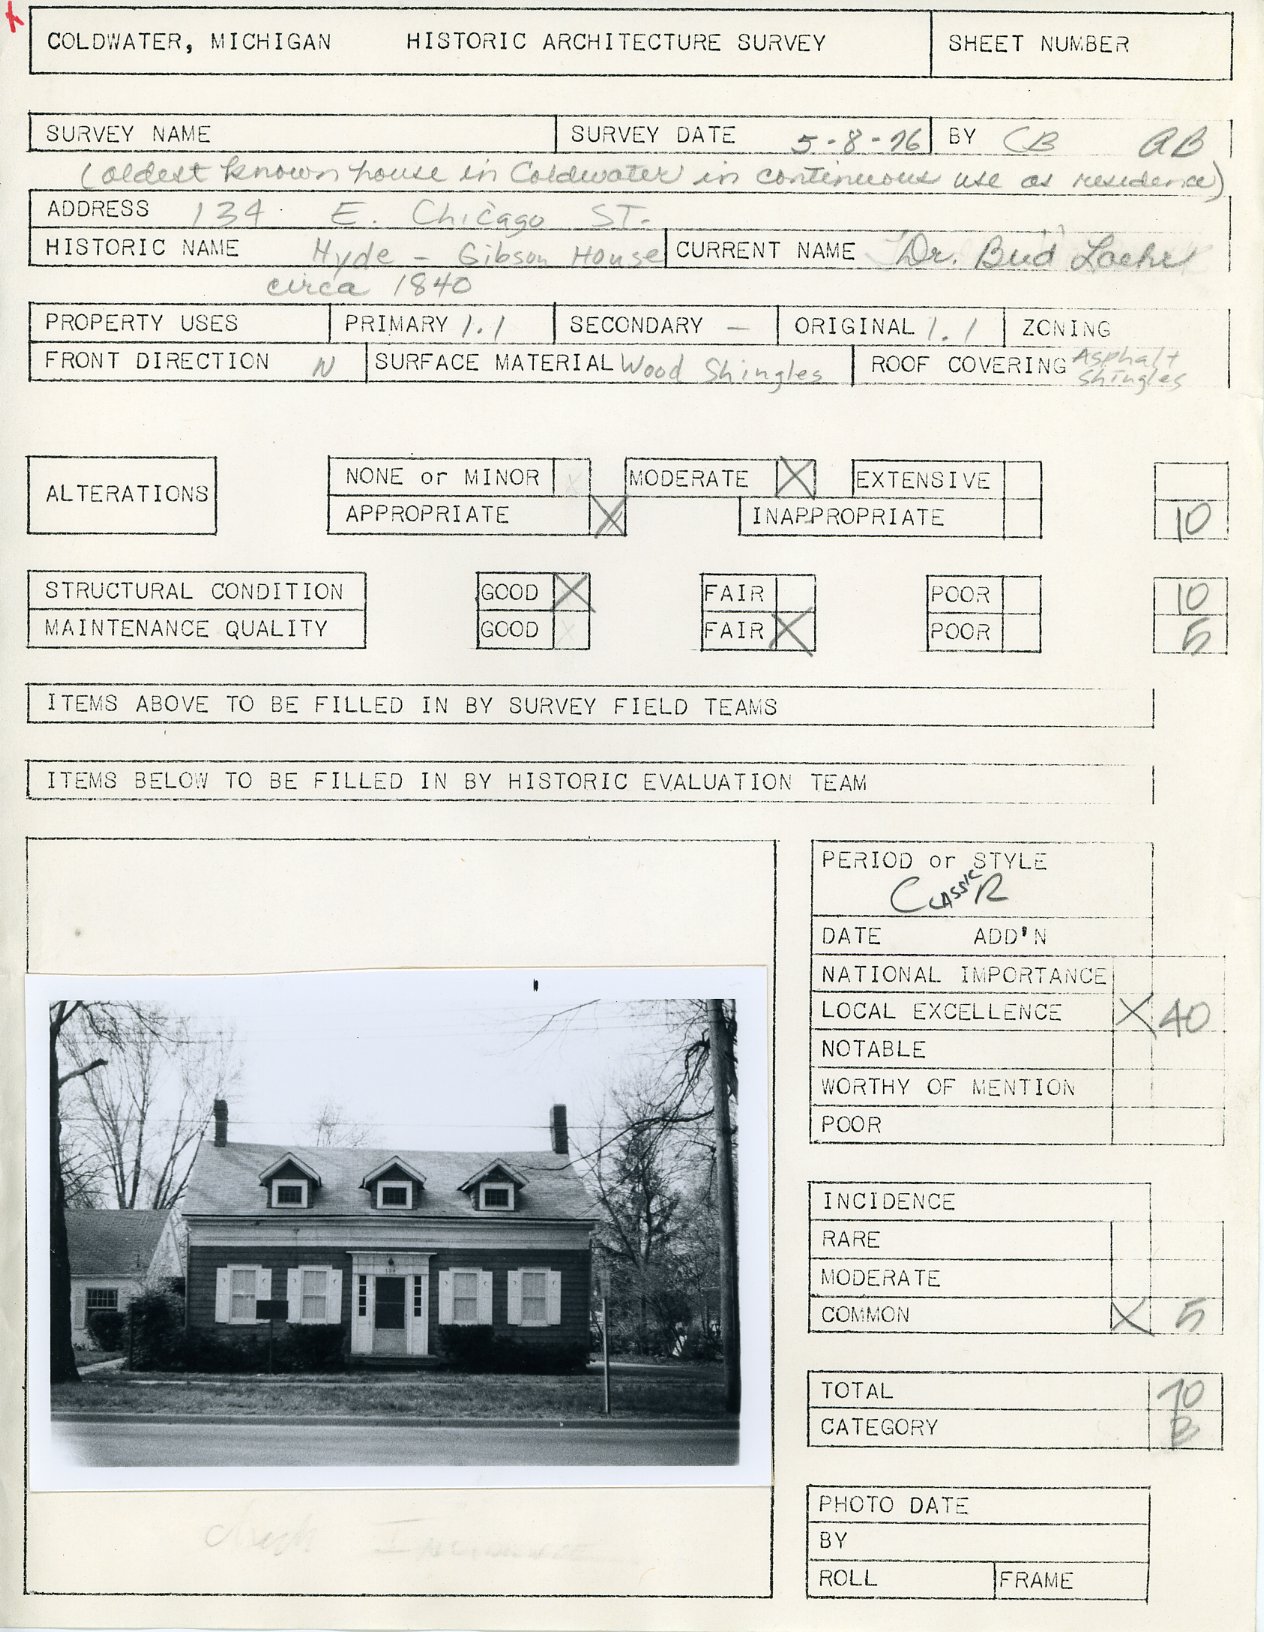 COLDWATER, MICHIGAN HISTORIC ARCHITECTURE SURVEY SHEET NUMBER
SURVEY NAME SURVEY DATE 5-8-76 BY CB AB
(oldest known house in Coldwater in continuous use as residence)
ADDRESS 134 E. Chicago ST.
HISTORIC NAME Hyde - Gibson House CURRENT NAME Dr. Bud Loehr
circa 1840
PROPERTY USES PRIMARY 1.1 SECONDARY - ORIGINAL 1.1 ZONING
FRONT DIRECTION N SURFACE MATERIAL Wood Shingles ROOF COVERING Asphalt
Shingles
ALTERATIONS NONE or MINOR MODERATE X EXTENSIVE
APPROPRIATE X INAPPROPRIATE 10
STRUCTURAL CONDITION GOOD X FAIR POOR 10
MAINTENANCE QUALITY GOOD FAIR X POOR 5
ITEMS ABOVE TO BE FILLED IN BY SURVEY FIELD TEAMS
ITEMS BELOW TO BE FILLED IN BY HISTORIC EVALUATION TEAM
PERIOD or STYLE
CLASSIC R
DATE ADD'N
NATIONAL IMPORTANCE
LOCAL EXCELLENCE X 40
NOTABLE
WORTHY OF MENTION
POOR
INCIDENCE
RARE
MODERATE
COMMON X 5
TOTAL 70
CATEGORY B
PHOTO DATE
BY
ROLL FRAME